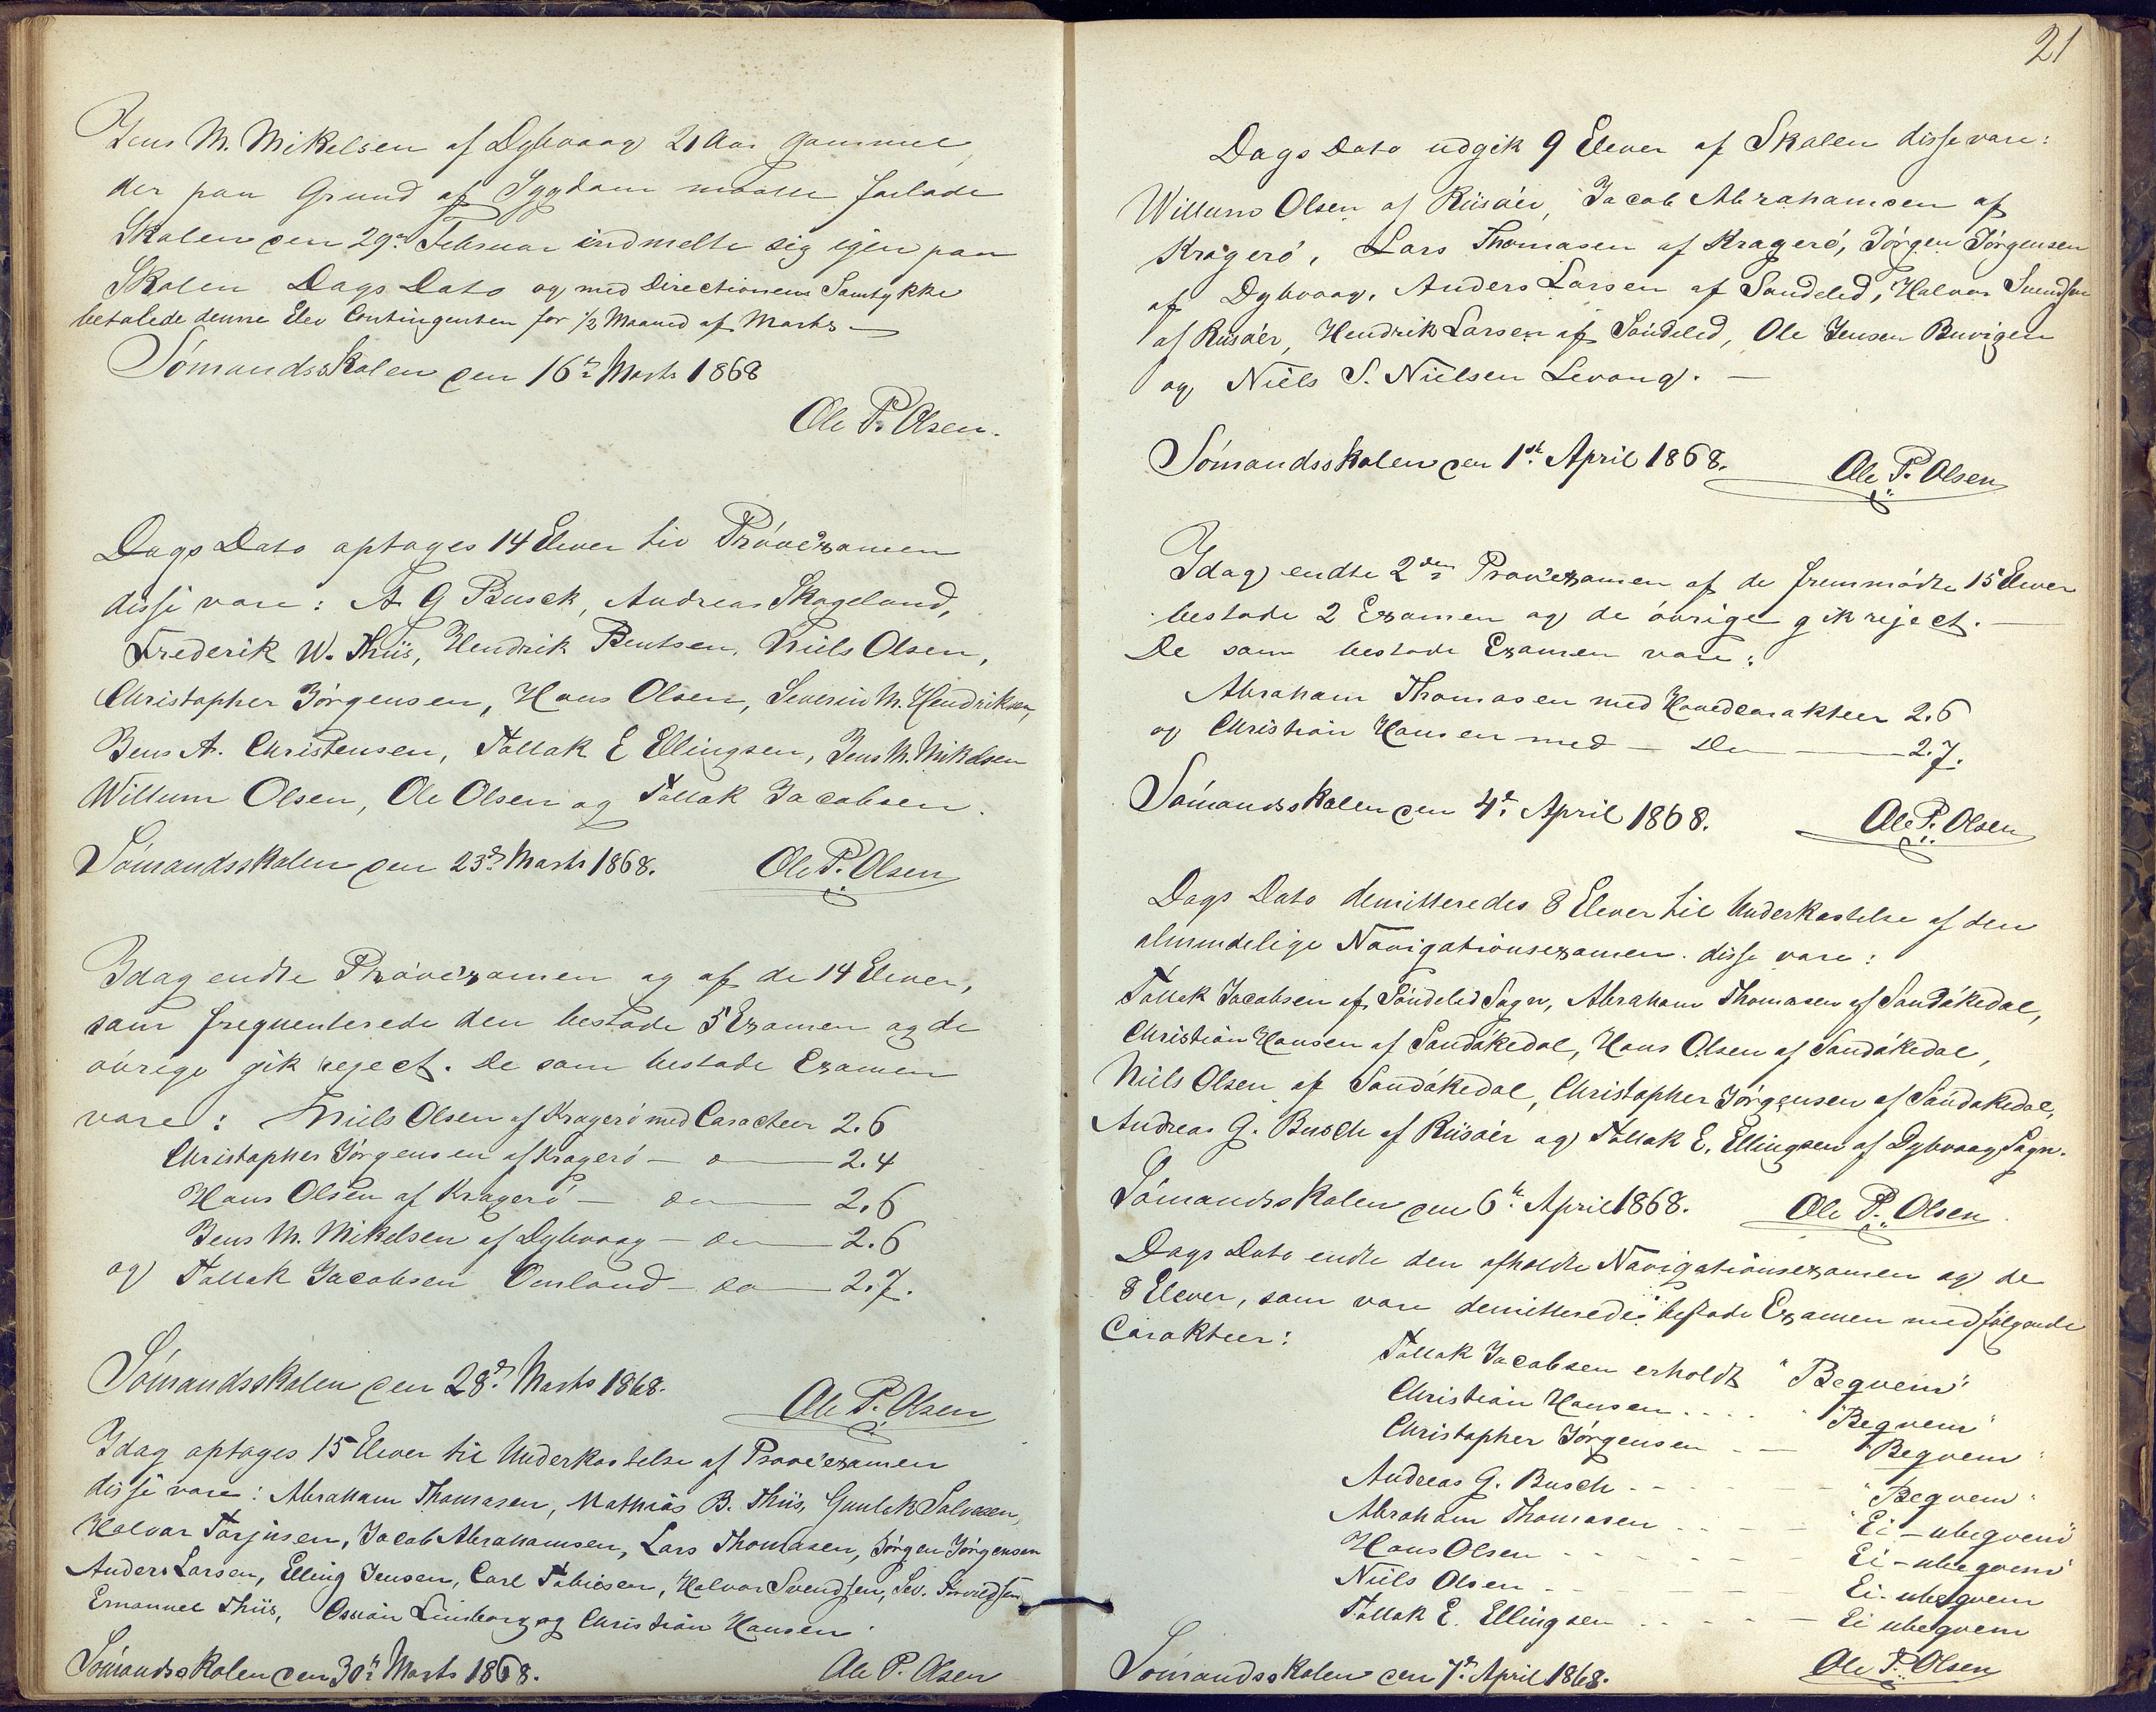 Jens M. Mikelsen af Dybvaag 21 Aar gammel,
der paa Grund af Sygdom maatte forlade
Skolen den 29de Februar indmelte sig igjen paa
Skolen Dags Dato og med Directionens Samtykke
betalede denne Elev Contingenten for 1/2 Maaned af Marts —
Sómandsskolen den 16de Marts 1868
Ole P. Olsen.
Dags Dato optages 14 Elever til Próveexamen
disse vare: A. G Busck, Andreas Skogeland,
Frederik W. Thiis, Hendrik Bentsen, Niels Olsen,
Christopher Jórgensen, Hans Olsen, Severin M. Hendriksen,
Jens A. Christensen, Tollak E Ellingsen, Jens M. Mikelsen
Willum Olsen, Ole Olsen og Tollak Jacobsen.
Sómandsskolen den 23de Marts 1868. Ole P. Olsen
Idag endte Próveexamen og af de 14 Elever,
som frequenterede den bestode 5 Examen og de
óvrige gik reject. De som bestode Examen
vare: Niels Olsen af Krageró med Caracteer 2.6
Christopher Jórgensen af Krageró — do — 2.4
Hans Olsen af Krageró — do — 2.6
Jens M. Mikelsen af Dybvaag — do — 2.6
og Tollak Jacobsen Omland — do — 2.7.
Sómandsskolen den 28de Marts 1868.
Ole P. Olsen
Idag optages 15 Elever til Underkastelse af Proveexamen
disse vare: Abraham Thomasen, Mathias B. Thiis, Gunlek Salvesen,
Halvor Torjusen, Jacob Abrahamsen, Lars Thomasen, Jórgen Jórgensen
Anders Larsen, Elling Jensen, Carl Tobiesen, Halvor Svendsen, Sev.
Emanuel Thiis, Lindborg og Christian Hansen.
Sómandsskolen den 30te Marts 1868. Ole P. Olsen
21
Dags Dato udgik 9 Elever af Skolen disse vare:
Willum Olsen af Riisóer, Jacob Abrahamsen af
Krageró, Lars Thomasen af Krageró, Jórgen Jórgensen
af Dybvaag, Anders Larsen af Sondeled, Halvor Svendsen
af Riisóer, Hendrik Larsen af Sóndeled, Ole Jensen Buvigen
og Niels S. Nielsen Levang. —
Sómandsskolen den 1ste April 1868. Ole P. Olsen
Idag endte 2den Proveexamen af de fremmódte 15 Elever
bestode 2 Examen og de óvrige gik reject. —
De som bestode Examen vare:
Abraham Thomasen med Hovedcarakteer 2.6
og Christian Hansen med — Do — 2.7.
Sómandsskolen den 4de April 1868. Ole P. Olsen
Dags Dato demitteredes 8 Elever til Underkastelse af den
almindelige Navigationsexamen. disse vare:
Tollak Jacobsen af Sóndeled Sogn, Abraham Thomasen af Sandókedal,
Christian Hansen af Sandókedal, Hans Olsen af Sandókedal,
Niels Olsen af Sandókedal, Christopher Jórgensen af Sandókedal,
Andreas G. Busch af Riisóer og Tollak E. Ellingsen af Dybvaag Sogn.
Sómandsskolen den 6te April 1868. Ole P. Olsen
Dags Dato endte den afholdte Navigationsexamen og de
8 Elever, som vare demitterede bestode Examen med fólgende
Carakteer:
Tollak Jacobsen erholdt "Beqvem"
Christian Hansen . . . . "Beqvem"
Christopher Jórgensen - — "Beqvem"
Andreas G. Busch - - - - "Beqvem"
Abraham Thomasen - - - "Ei - ubeqvem"
Hans Olsen - - - - - Ei - ubeqvem"
Niels Olsen - - - — Ei - ubeqvem
Tollak E. Ellingsen - - - — Ei ubeqvem
Sómandsskolen den 7de April 1868. Ole P. Olsen